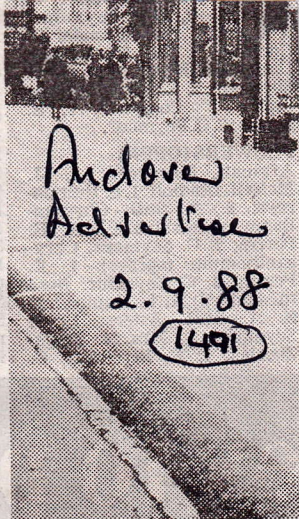 Andover
Advertiser
2.9.88
1491